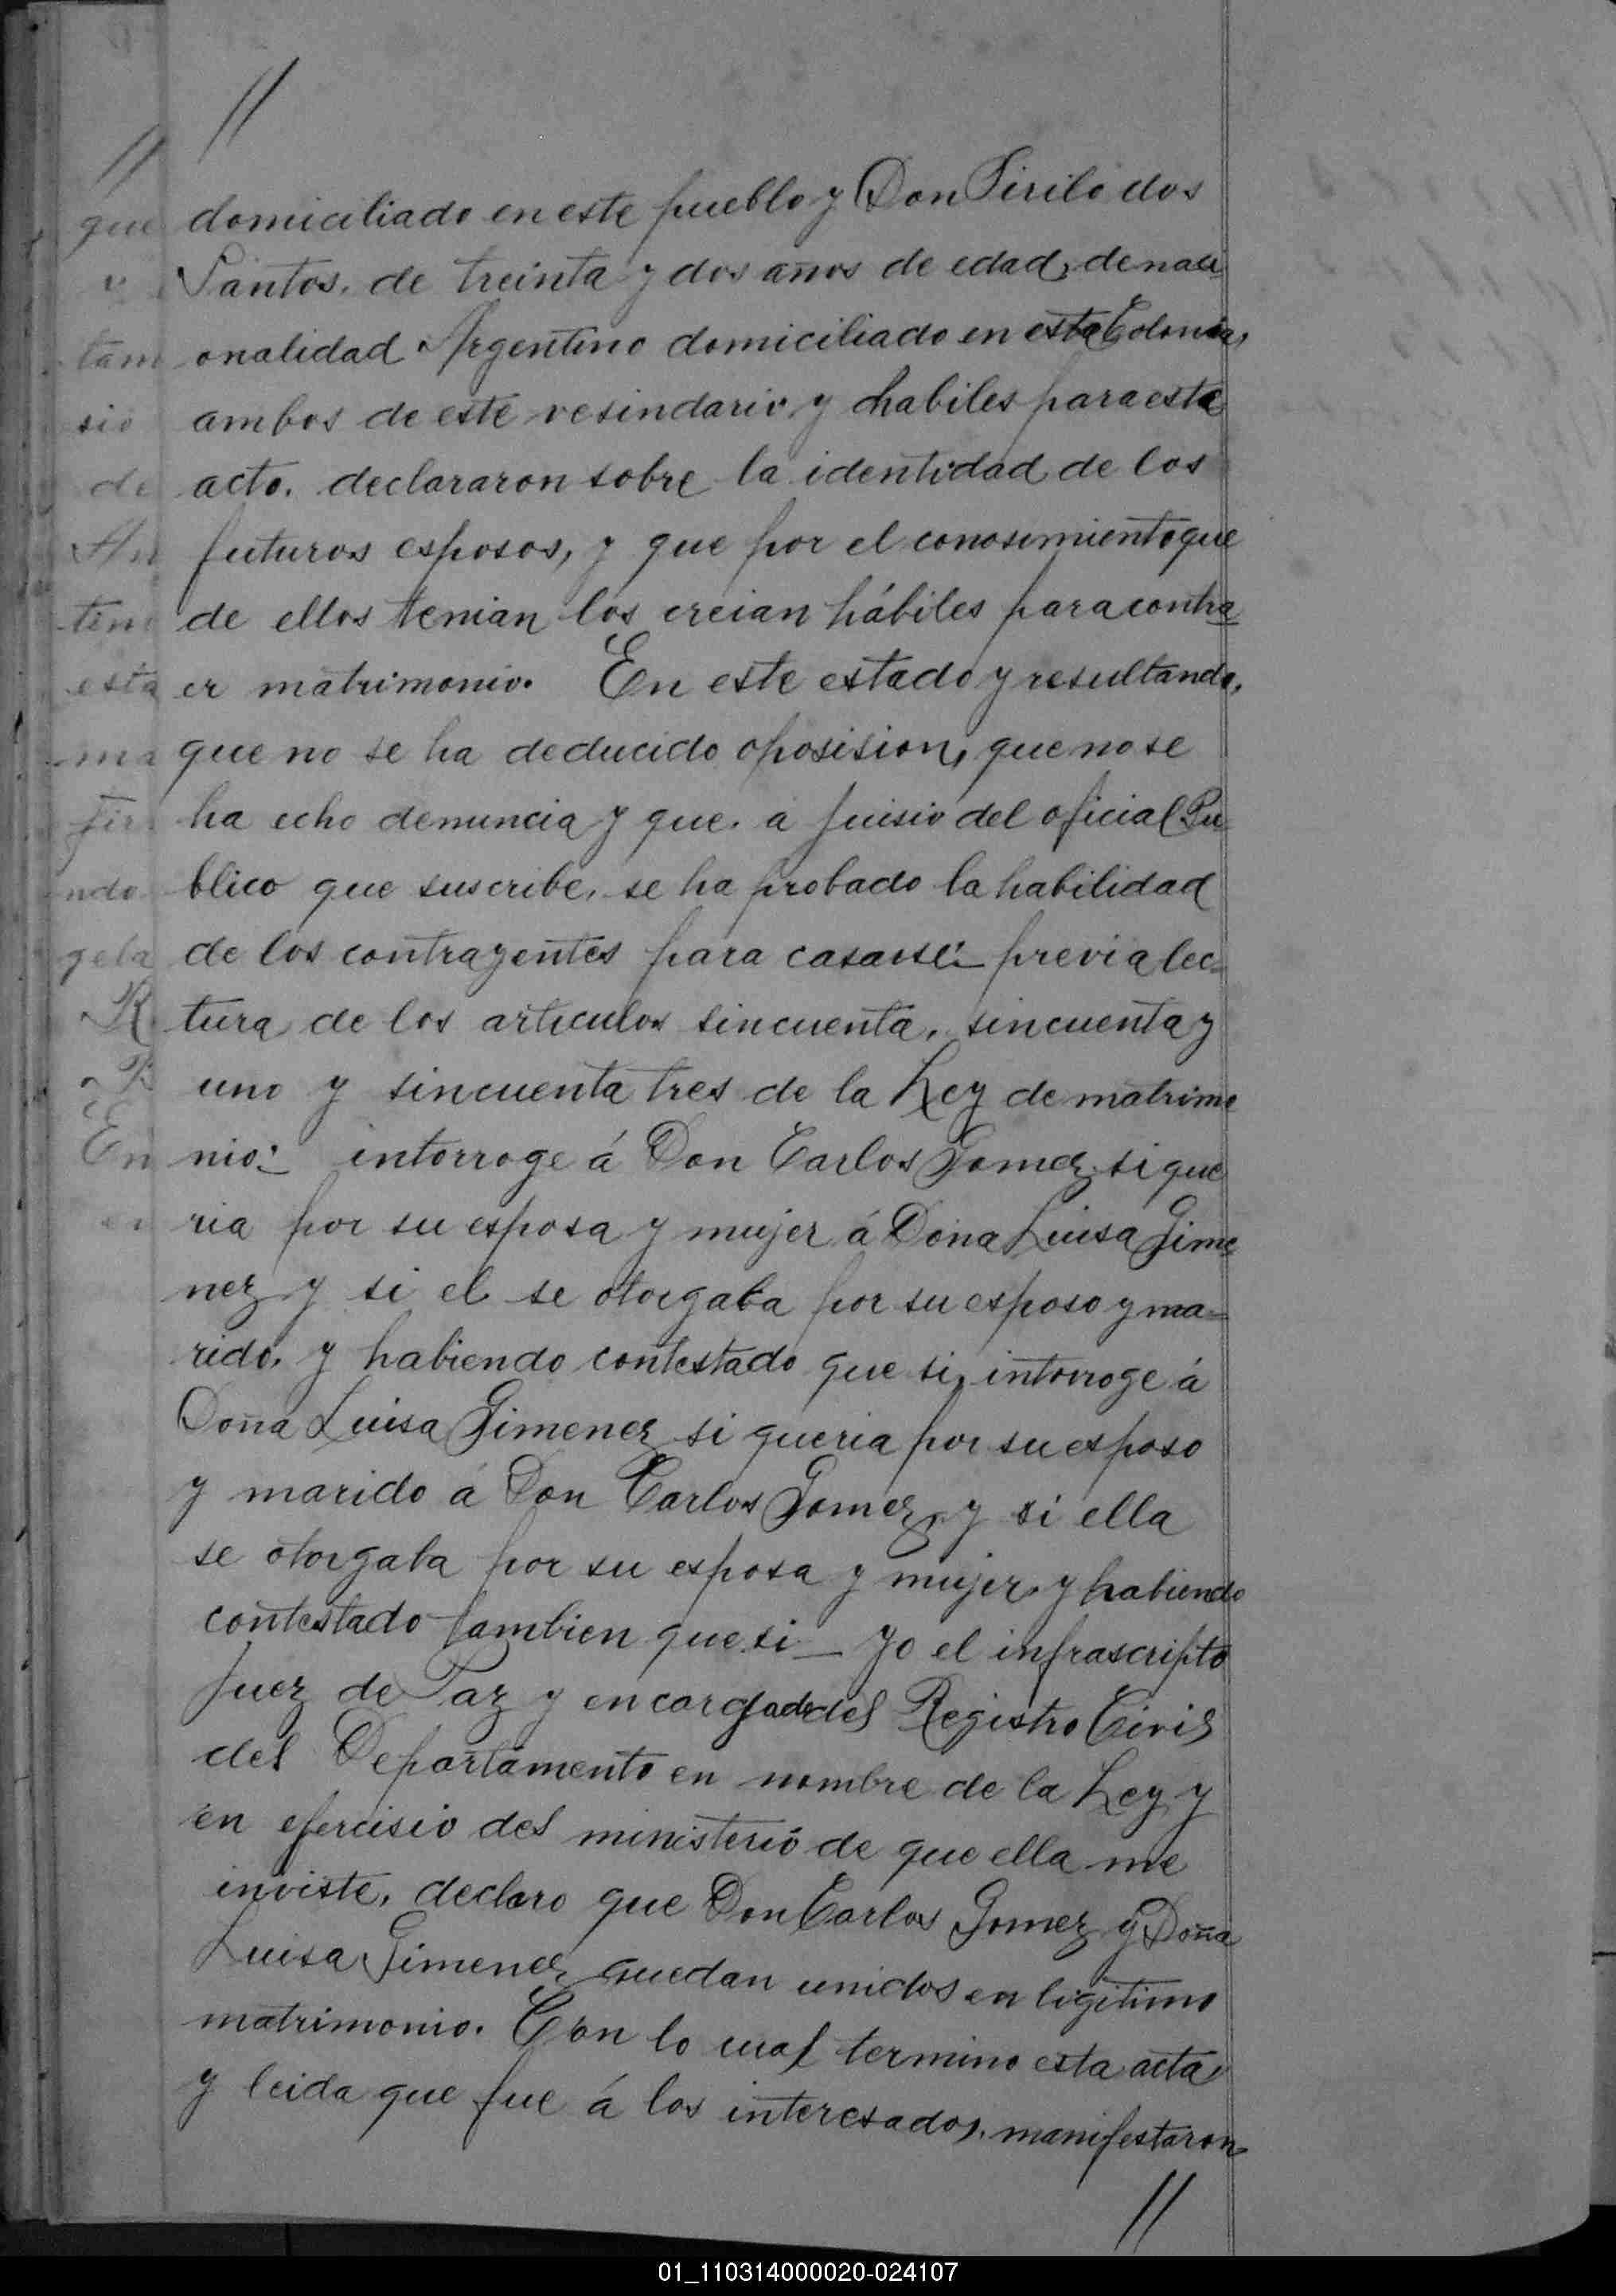 //
domiciliado en este pueblo y Don Sirilo dos
Santos. de treinta y dos años de edad, de naci
onalidad Argentino domiciliado en esta Colonia,
ambos de este vesindario y habiles para este
acto. declararon sobre la identidad de los
futuros esposos, y que por el conosimiento que
de ellos tenian los creian hábiles para contra
er matrimonio. En este estado y resultando,
que no se ha deducido oposision, que no se
ha echo denuncia y que. a juisio del oficial Pu
blico que suscribe, se ha probado la habilidad
de los contrayentes para casarse:_ previa lec=
tura de los articulos sincuenta, sincuenta y
uno y sincuenta tres de la Ley de matrimo
nio:_ intorroge á Don Carlos Gomez si que
ria por su esposa y mujer á Doña Luisa Gime
nez y si el se otorgaba por su esposo y ma=
rido, y habiendo contestado que si, intorroge á
Doña Luisa Gimenez si queria por su esposo
y marido á Don Carlos Gomez, y si ella
se otorgaba por su esposa y mujer, y habiendo
contestado tambien que si _ Yo el infrascripto
Juez de Paz y encargado del Registro Civil
del Departamento en nombre de la Ley y
en ejercisio del ministerio de que ella me
inviste, declaro que Don Carlos Gomez y Doña
Luisa Gimenez quedan unidos en ligitimo
matrimonio. Con lo cual termino esta acta
y leida que fue á los interesados, manifestaron
//
01_110314000020-024107